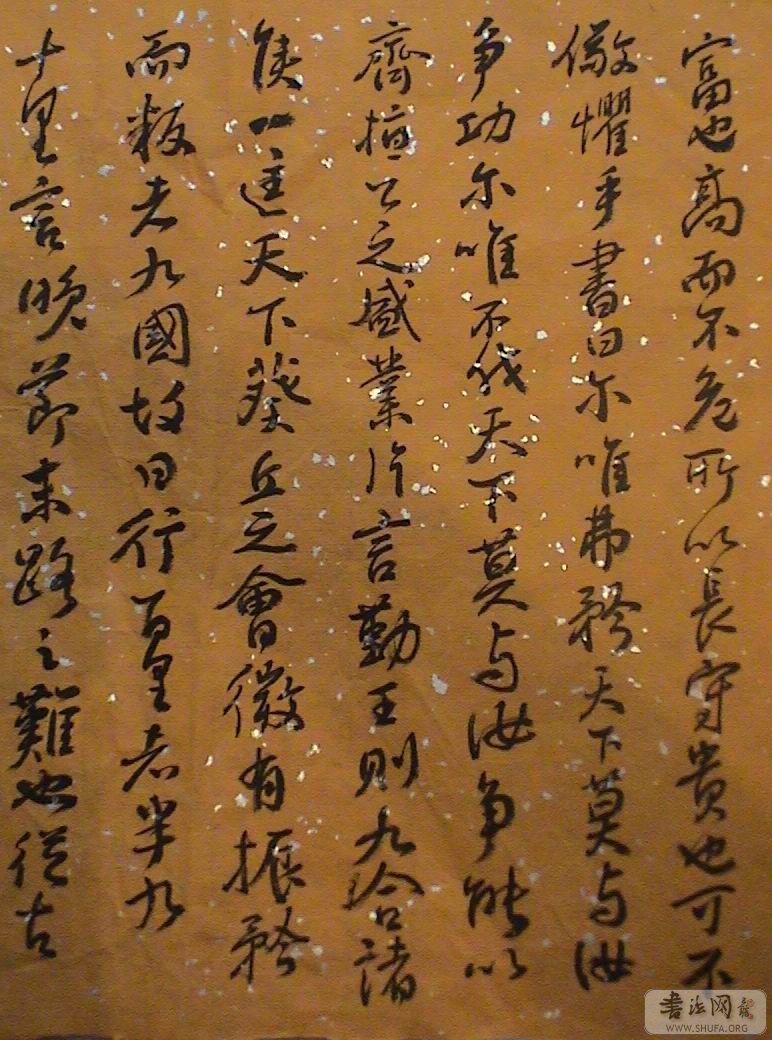 富也高而不危所以長守貴也可不
儆懼乎書曰尔唯弗矜天下莫与汝
争功尔唯不伐天下莫与汝争能以
齊桓公之盛業片言勤王則九合諸
侯一匡天下葵丘之會微有振矜
而叛者九國故曰行百里者半九
十里言晚節末路之難也從古
书法网
WWW.SHUFA.ORG